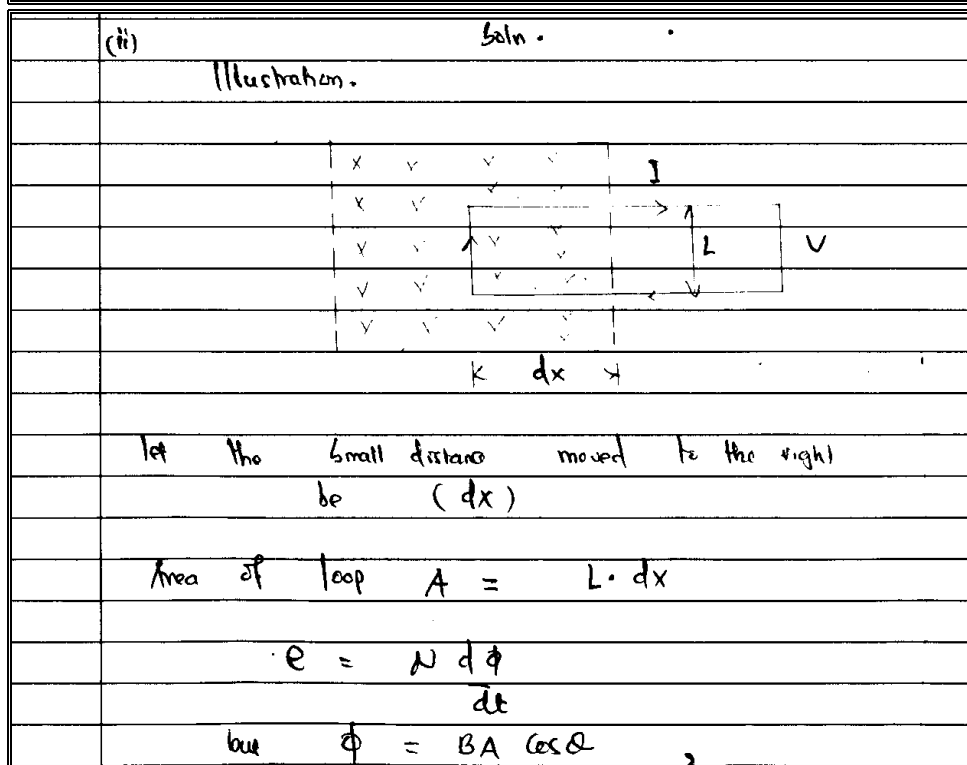 (ii) Soln.
Illustration.
x v v v
I
x v v v
x v v v
L V
v v v v
v v v v
dx
let the small distance moved to the right
be (dx)
Area of loop A = L. dx
e = N dφ
dt
but φ = BA Cosθ